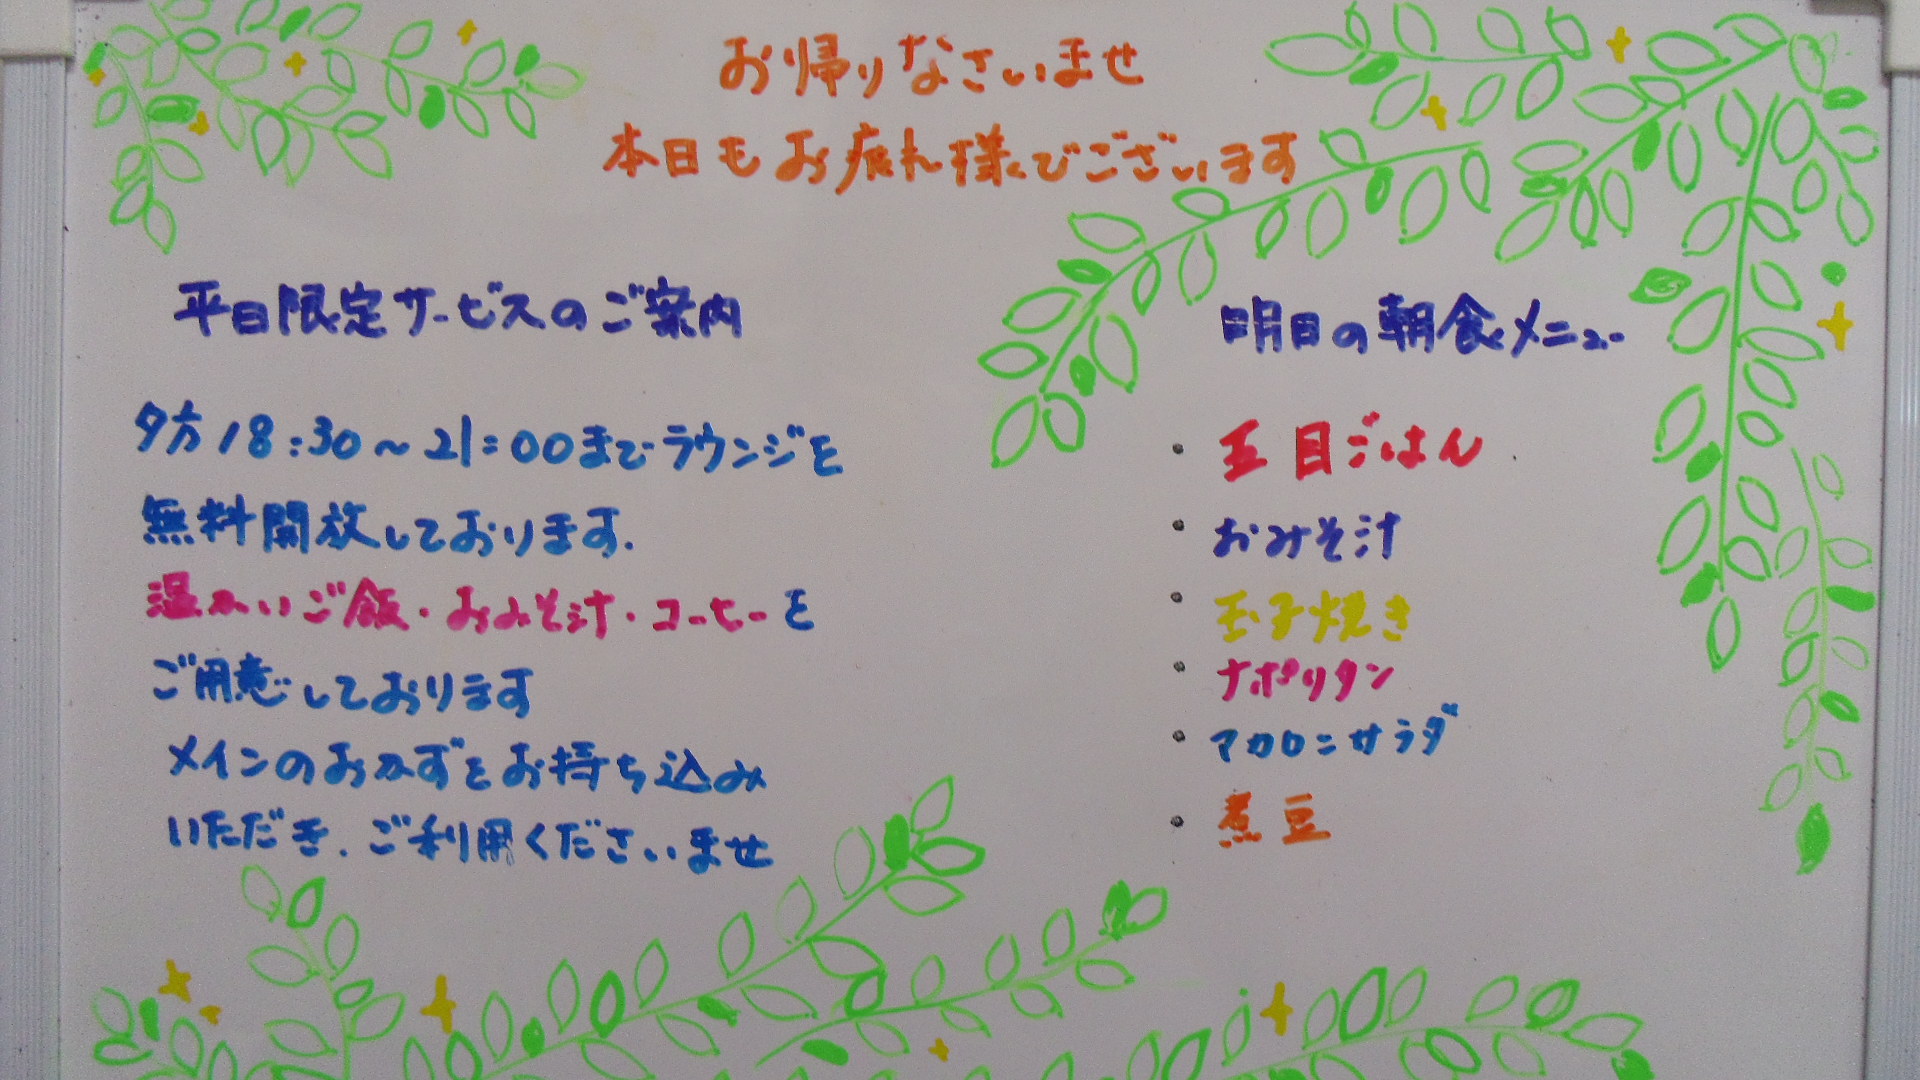 お帰りなさいませ
本日もお疲れ様でございます
平日限定サービスのご案内
夕方18:30〜21:00までラウンジを
無料開放しております.
温かいご飯・おみそ汁・コーヒーを
ご用意しております
メインのおかずをお持ち込み
いただき、ご利用くださいませ
明日の朝食メニュー
・五目ごはん
・おみそ汁
・玉子焼き
・ナポリタン
・マカロニサラダ
・煮豆